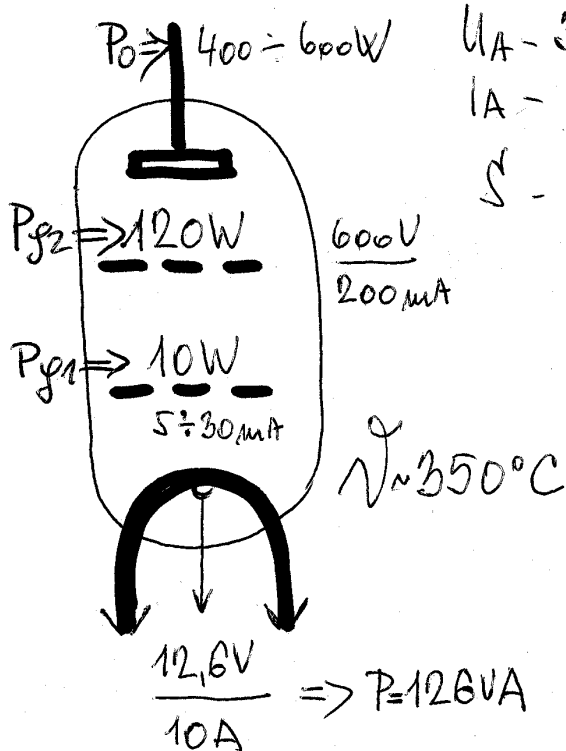 P0⇒ 400÷600W
UA -
IA -
S -
Pg2⇒120W
600V
200mA
Pg1⇒ 10W
5÷30mA
ϑ~350°C
12,6V
10A
⇒ P=126VA